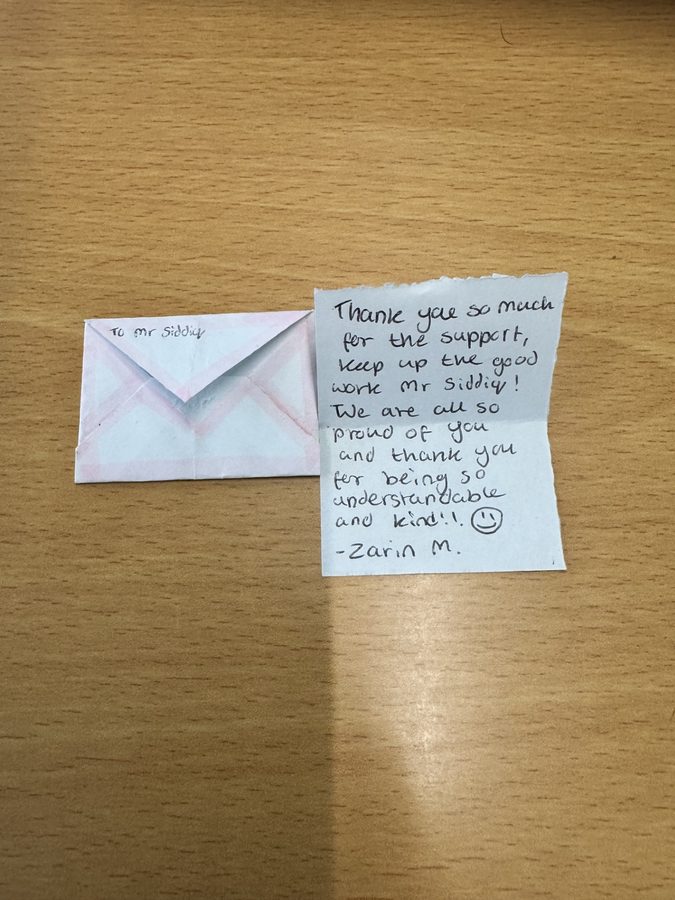 To Mr Siddiq
Thank you so much
for the support,
keep up the good
work Mr Siddiq!
We are all so
proud of you
and thank you
for being so
understandable
and kind!!. ☺
-Zarin M.